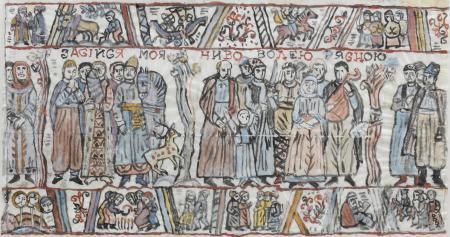 ЗАСІЙСЯ МОЯ НИВО ВОЛЕЮ ЯСНОЮ